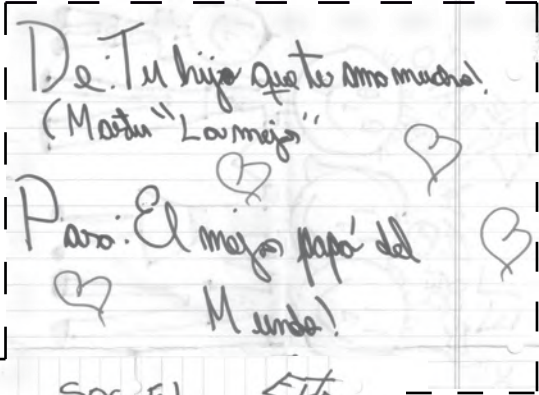 De: Tu hija que te ama mucho!
(Martu "La mejor"
Para: El mejor papá del
Mundo!
SOS El